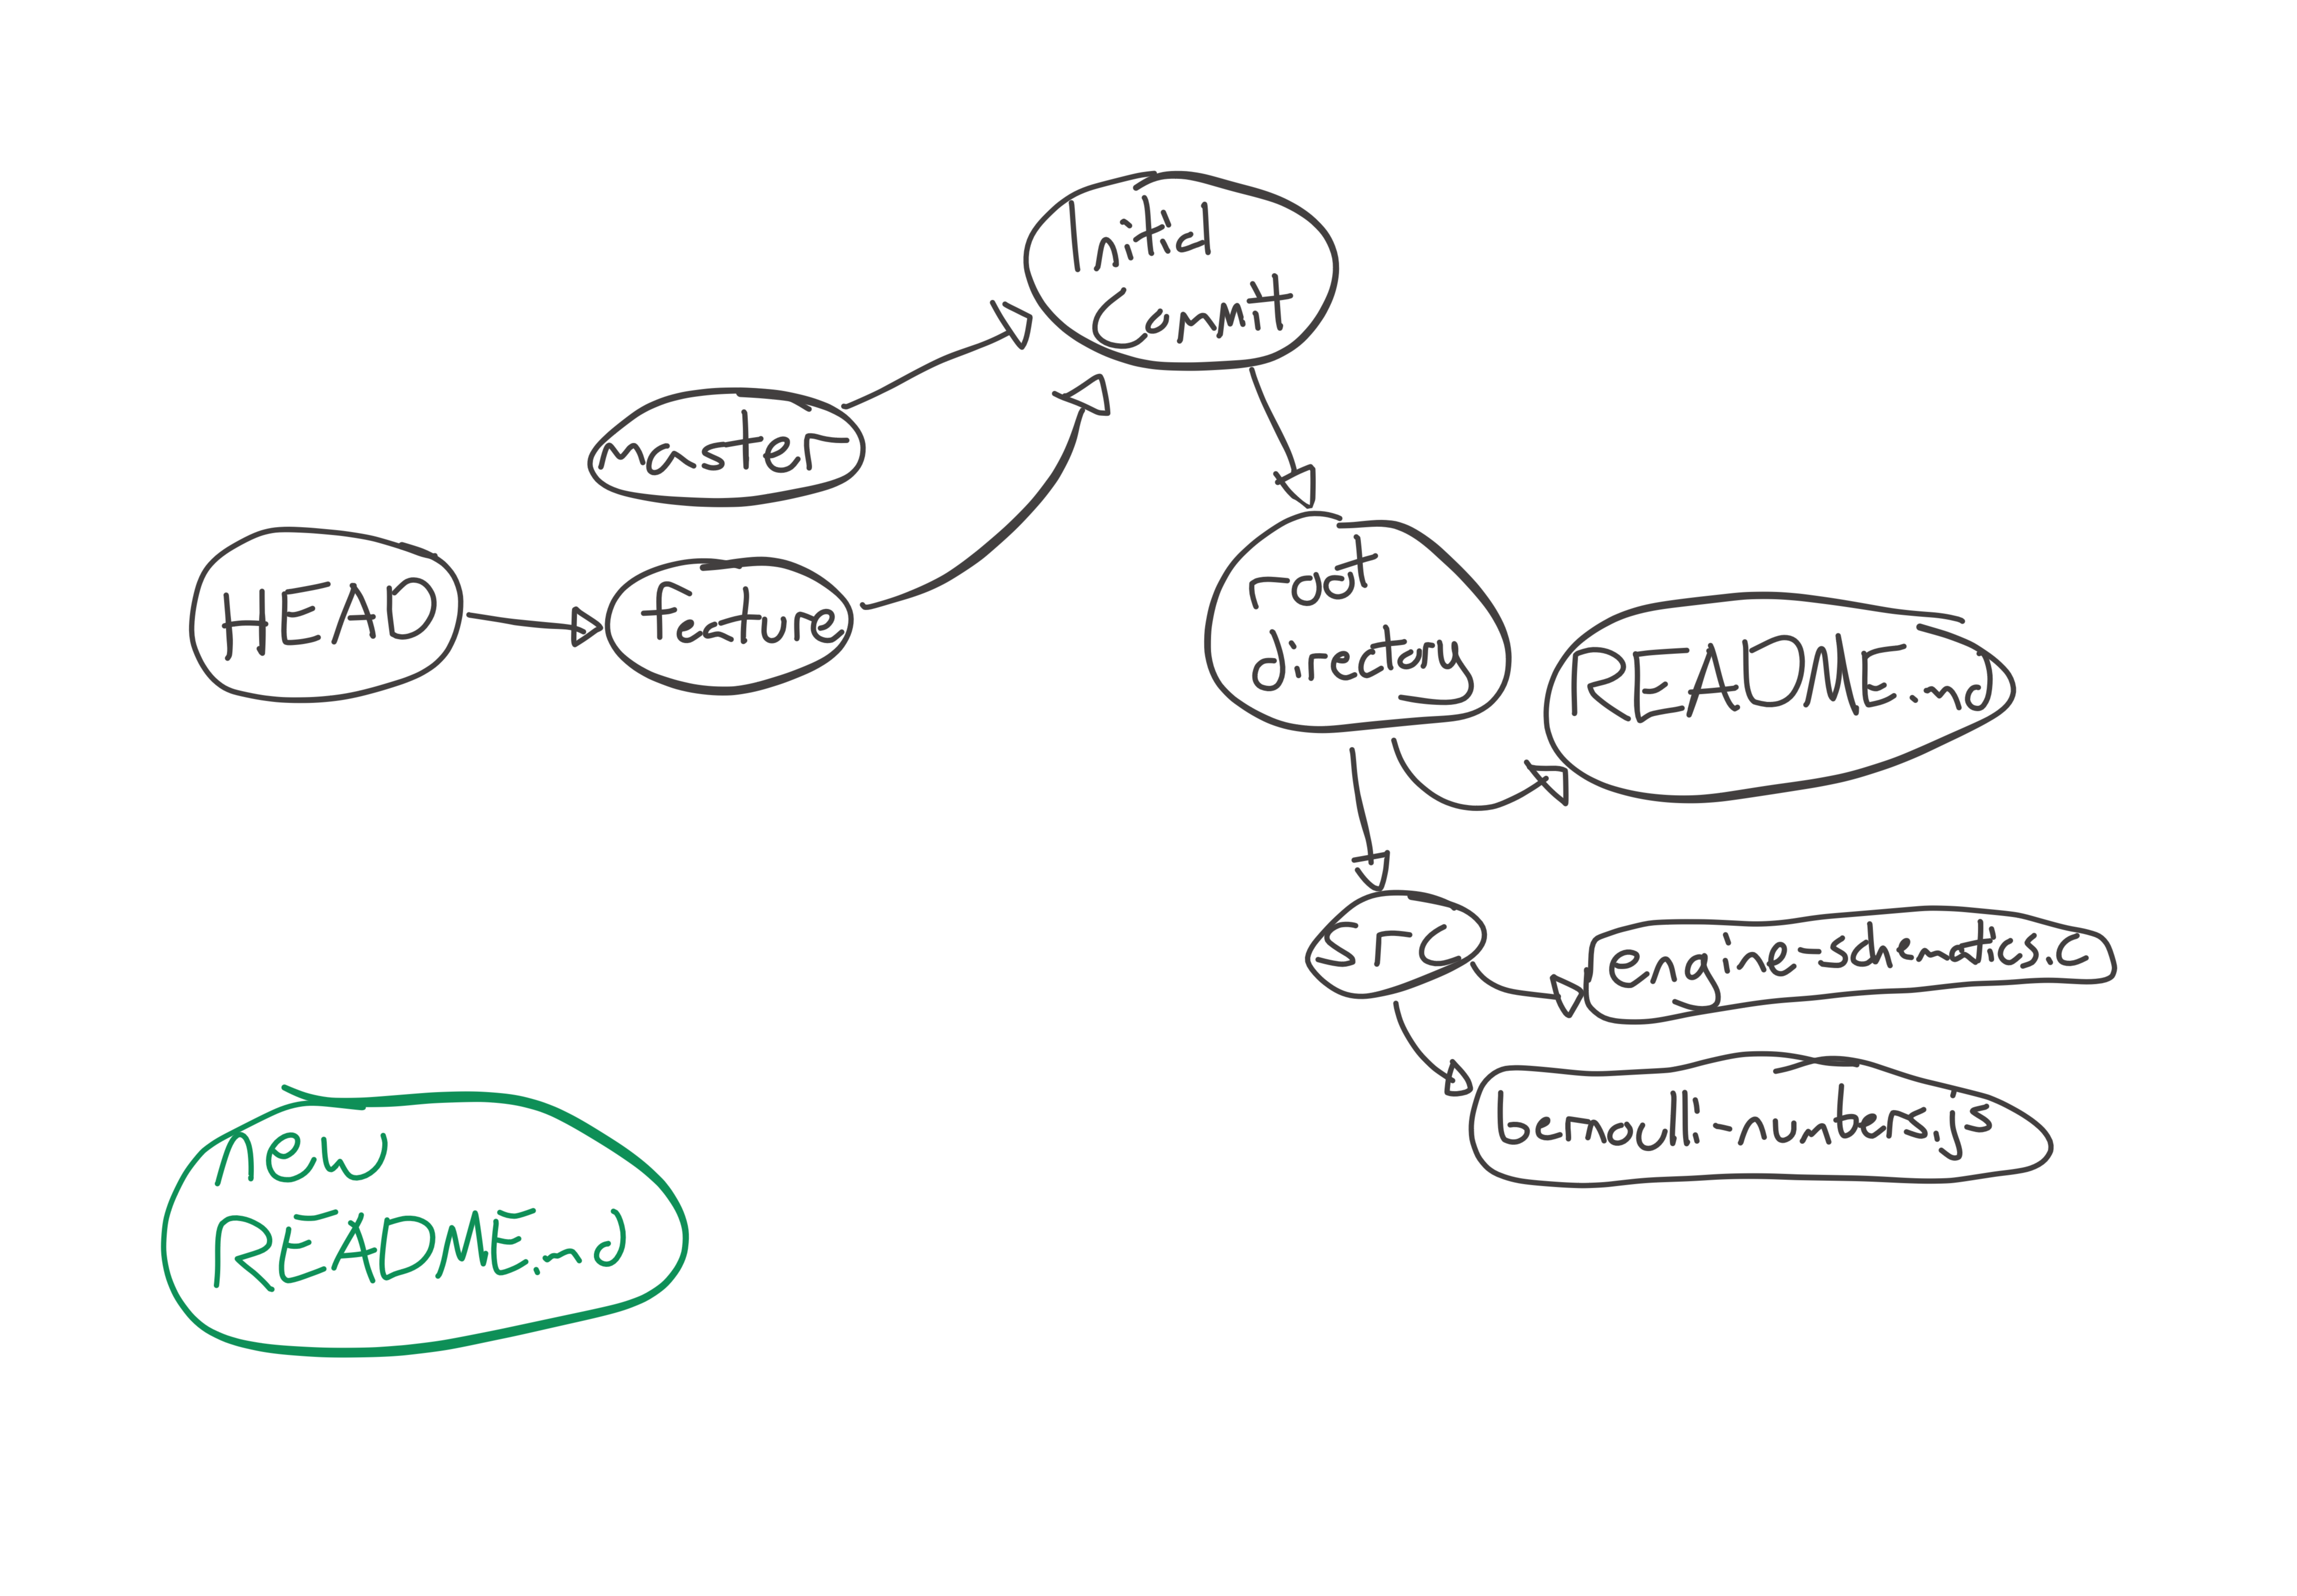 Initial
Commit
master
HEAD
feature
root
directory
README.md
src
engine-schematics.c
bernoulli-numbers.js
new
README.md